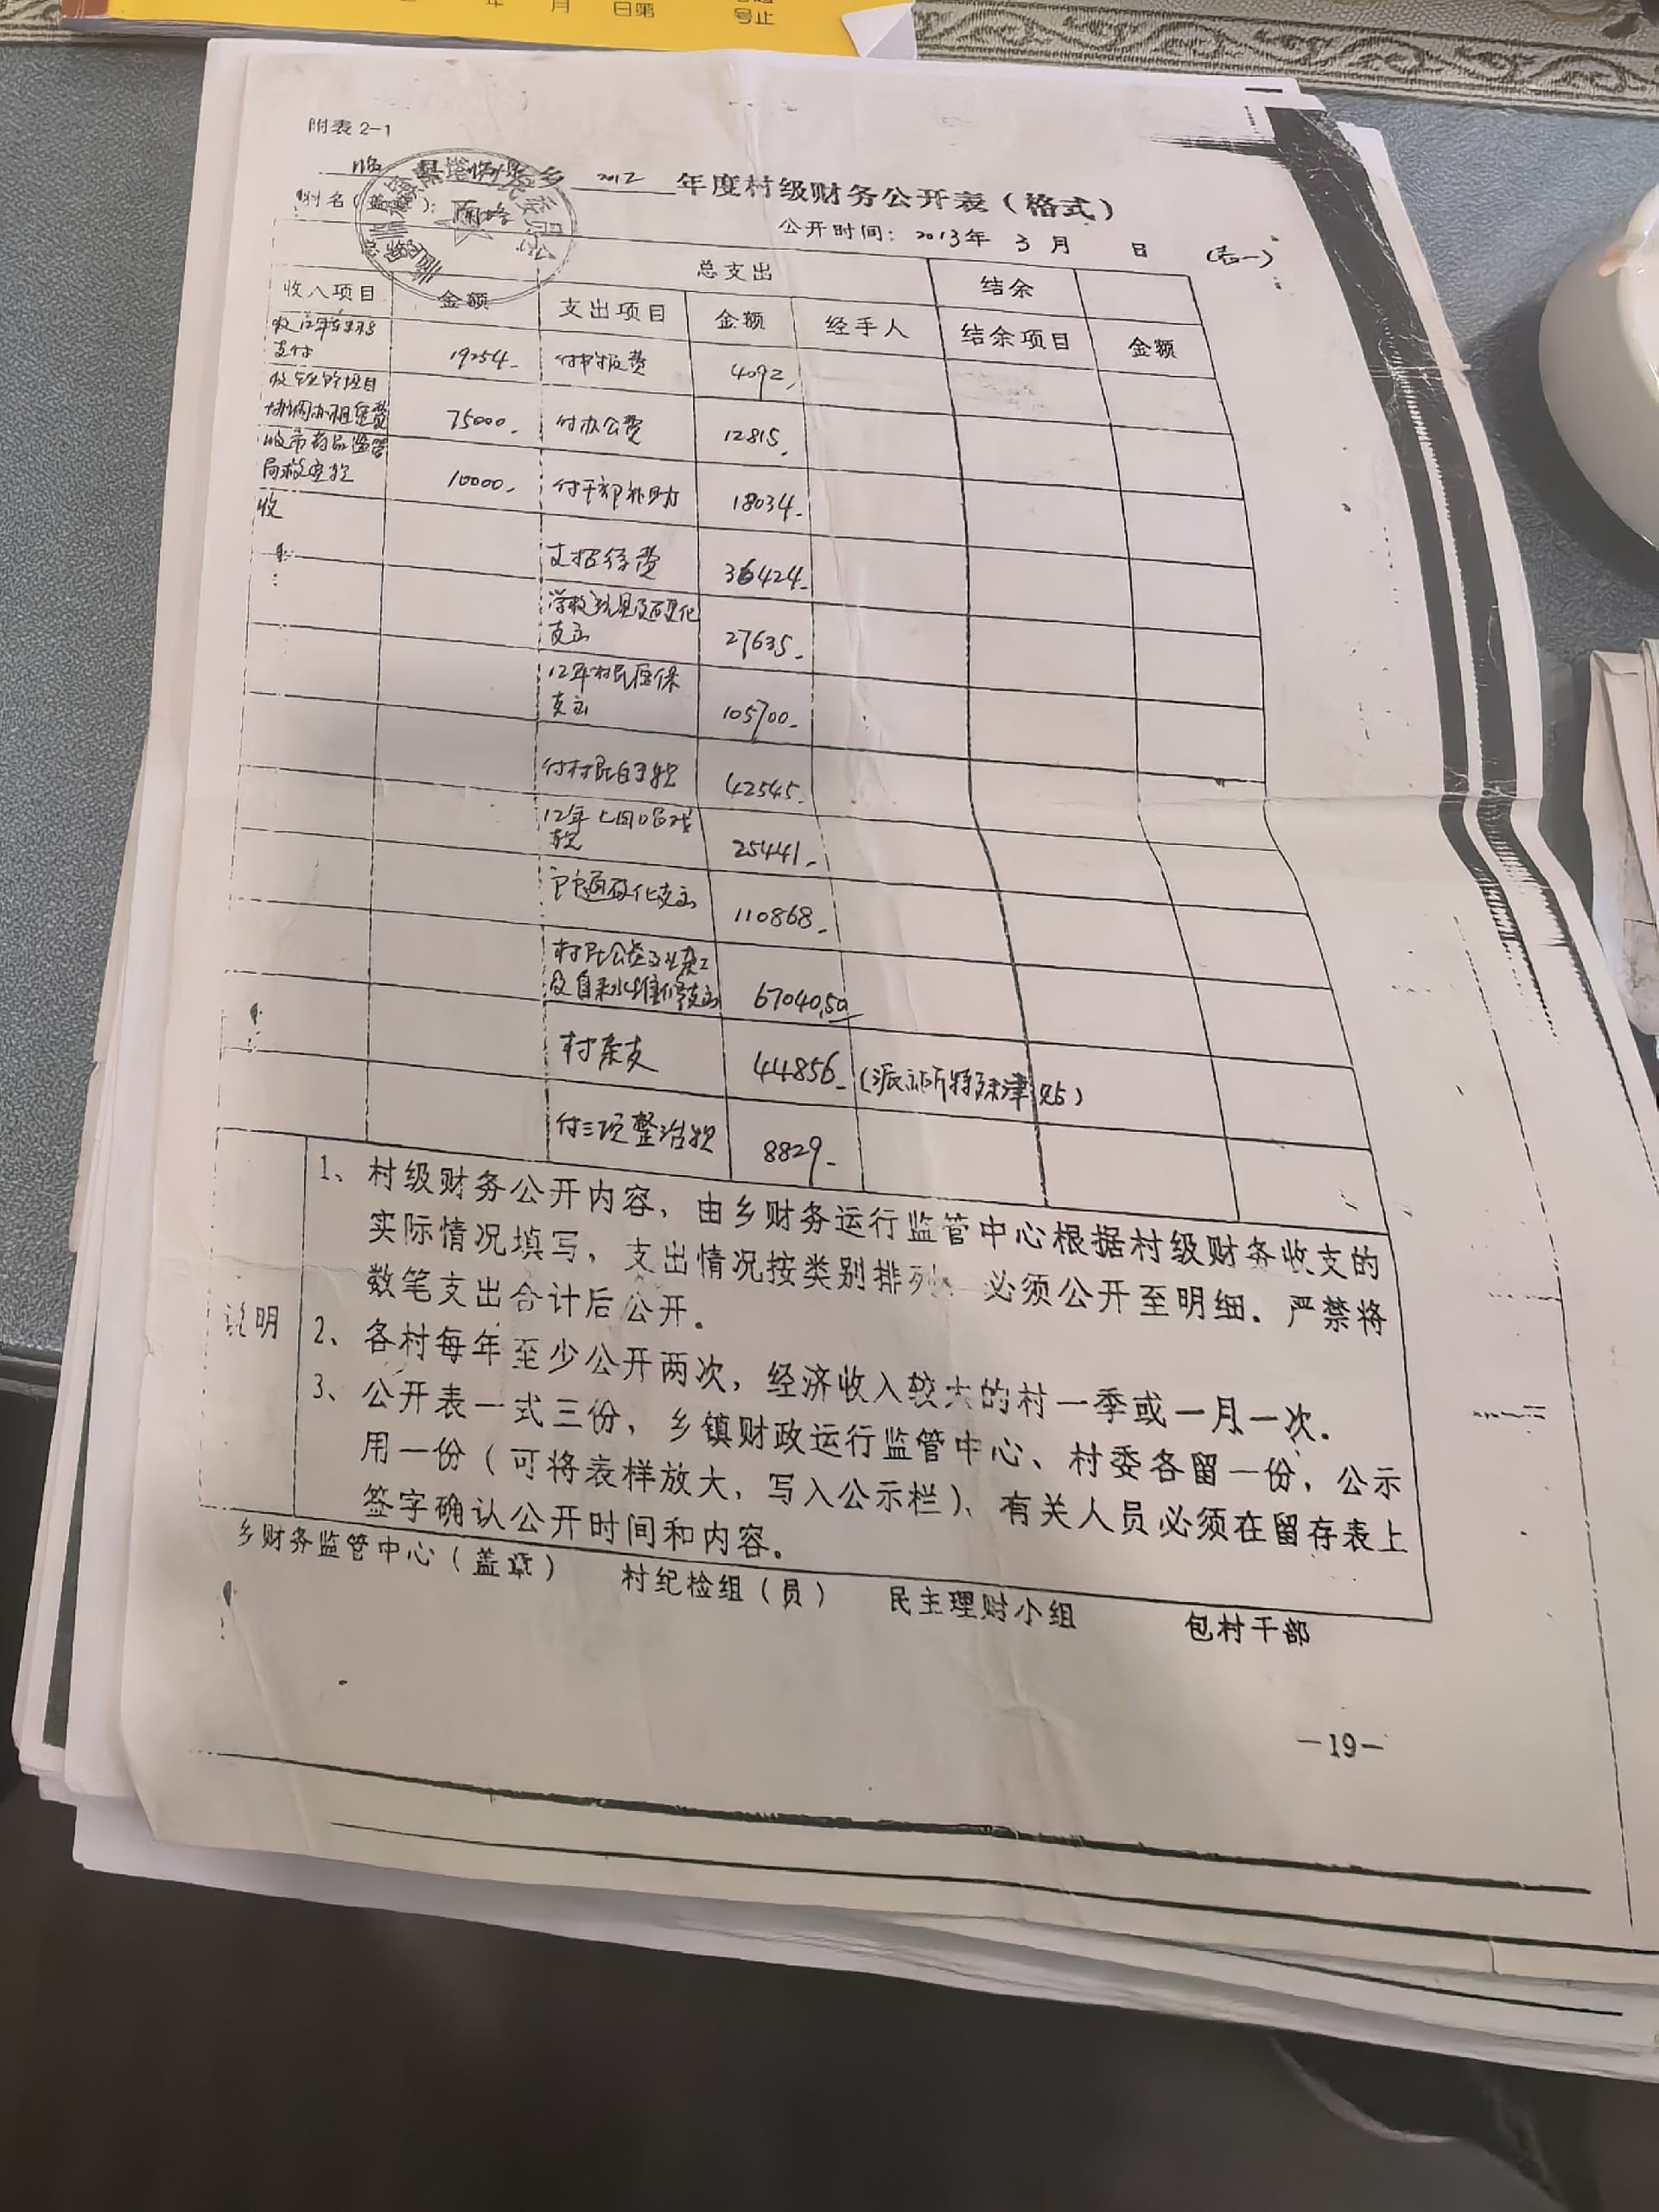 年 月 日第
号止
附表 2-1
临 县 乡 2012 年度村级财务公开表(格式)
公开时间: 2013年 3 月 日 (表一)
总支出 结余
收入项目 金额 支出项目 金额 经手人 结余项目 金额
支付 19254. 付书报费 4092.
75000. 付办公费 12815.
收市药品监管
局救灾款 10000. 付干部补助 18034.
收
支招待费 36424.
支出 27635.
12年村民医保
支出 105700.
付村民 款 42545.
12年 唱戏
款 25441.
户户通硬化支出 110868.
村民公益事业
及自来水维修支出 67040.50
村杂支 44856. (派出所特殊津贴)
付三项整治款 8829.
说明
1、村级财务公开内容, 由乡财务运行监管中心根据村级财务收支的
实际情况填写, 支出情况按类别排列 必须公开至明细. 严禁将
数笔支出合计后公开.
2、各村每年至少公开两次, 经济收入较大的村一季或一月一次.
3、公开表一式三份, 乡镇财政运行监管中心、村委各留一份, 公示
用一份(可将表样放大, 写入公示栏)、有关人员必须在留存表上
签字确认公开时间和内容.
乡财务监管中心(盖章) 村纪检组(员) 民主理财小组 包村干部
-19-